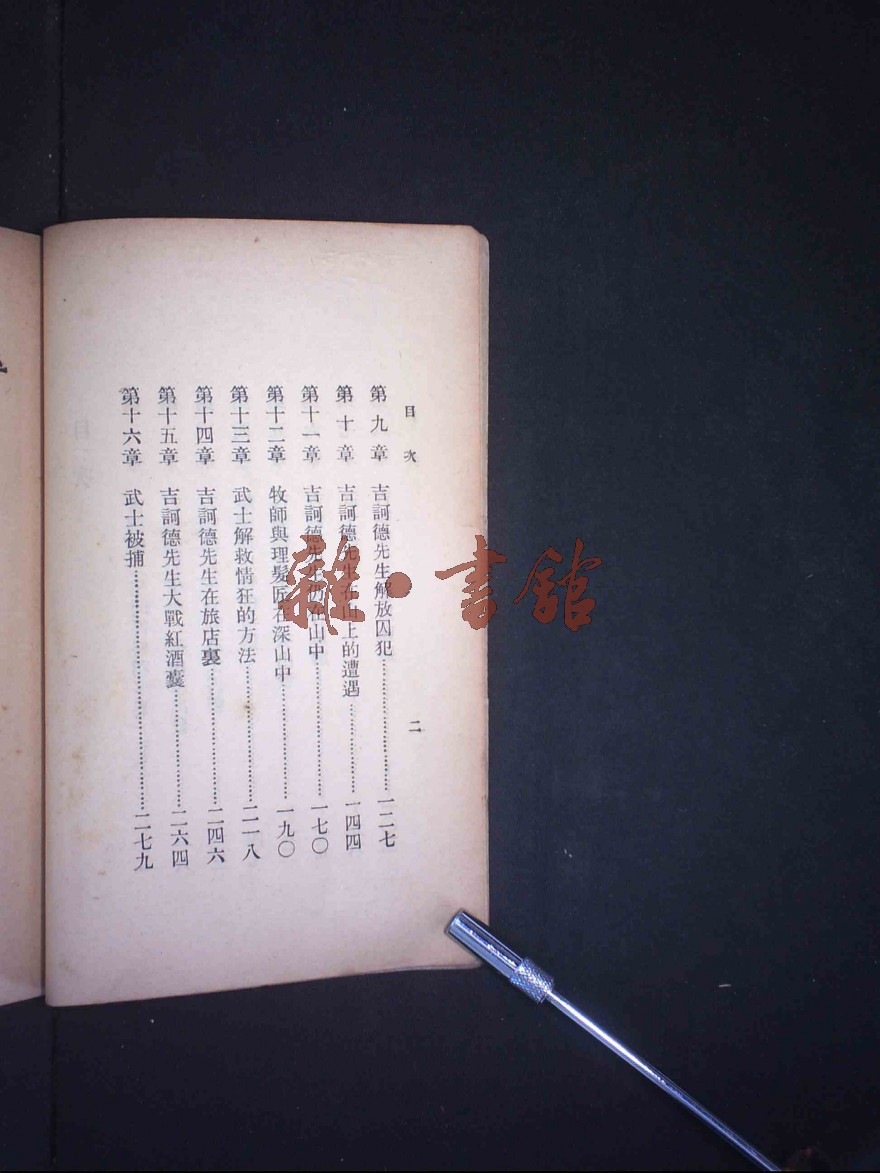 目次
二
第九章 吉訶德先生解放囚犯……一二七
第十章 吉訶德先生在山上的遭遇……一四四
第十一章 吉訶德先生仍在山中……一七〇
第十二章 牧師與理髮匠在深山中……一九〇
第十三章 武士解救情狂的方法……二一八
第十四章 吉訶德先生在旅店裏……二四六
第十五章 吉訶德先生大戰紅酒囊……二六四
第十六章 武士被捕……二七九
雜·書館